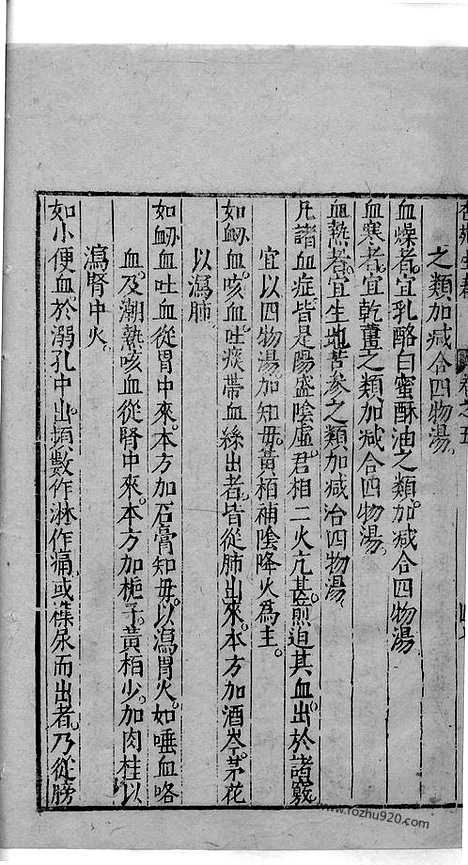 卷之五
之類加减合四物湯
血燥者宜乳酪白蜜酥油之類加减合四物湯
血寒者宜乾薑之類加减合四物湯
血熱者宜生地苦参之類加减治四物湯
凡諸血症皆是陽盛陰虛君相二火亢甚煎迫其血出於諸竅
宜以四物湯加知母黃栢補陰降火為主
如衂血咳血吐痰帶血絲出者皆從肺出來本方加酒芩茅花
以瀉肺
如衂血吐血從胃中來本方加石膏知毋以瀉胃火如唾血咯
血及潮熱咳血從腎中來本方加梔子黃栢少加肉桂以
瀉腎中火
如小便血於溺孔中出頻數作淋作痛或雜尿而出者乃從膀
www.fozhu920.com